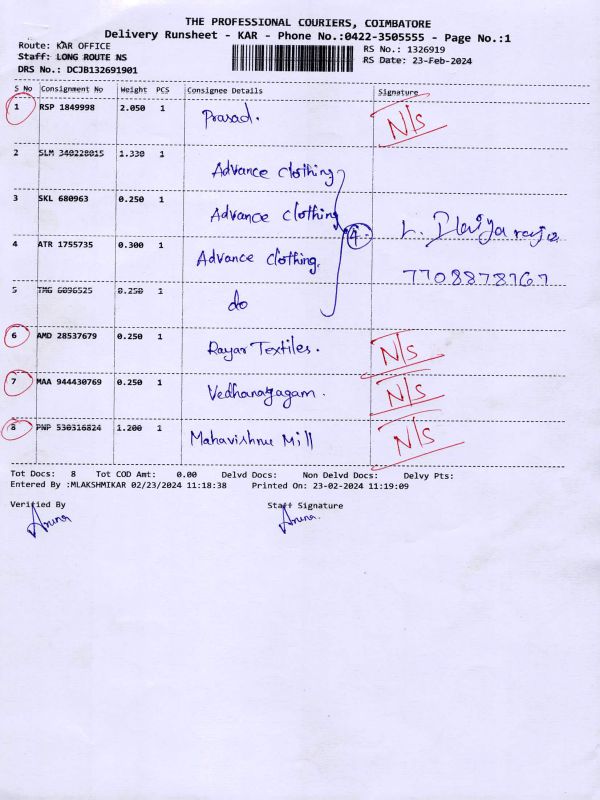 THE PROFESSIONAL COURIERS, COIMBATORE
Delivery Runsheet - KAR - Phone No.:0422-3505555 - Page No.:1
Route: KAR OFFICE RS No.: 1326919
Staff: LONG ROUTE NS RS Date: 23-Feb-2024
DRS No.: DCJB132691901
S No Consignment No Weight PCS Consignee Details Signature
1 RSP 1849998 2.050 1 Prasad. N/S
2 SLM 340228015 1.330 1 Advance clothing
3 SKL 680963 0.250 1 Advance clothing
4 ATR 1755735 0.300 1 Advance clothing. 4. 7708878767
5 TMG 6096525 0.250 1 do
6 AMD 28537679 0.250 1 Rayar Textiles. N/S
7 MAA 944430769 0.250 1 N/S
8 PNP 530316824 1.200 1 Mahavishnu Mill N/S
Tot Docs: 8 Tot COD Amt: 0.00 Delvd Docs: Non Delvd Docs: Delvy Pts:
Entered By :MLAKSHMIKAR 02/23/2024 11:18:38 Printed On: 23-02-2024 11:19:09
Verified By Staff Signature
Aruna Aruna.